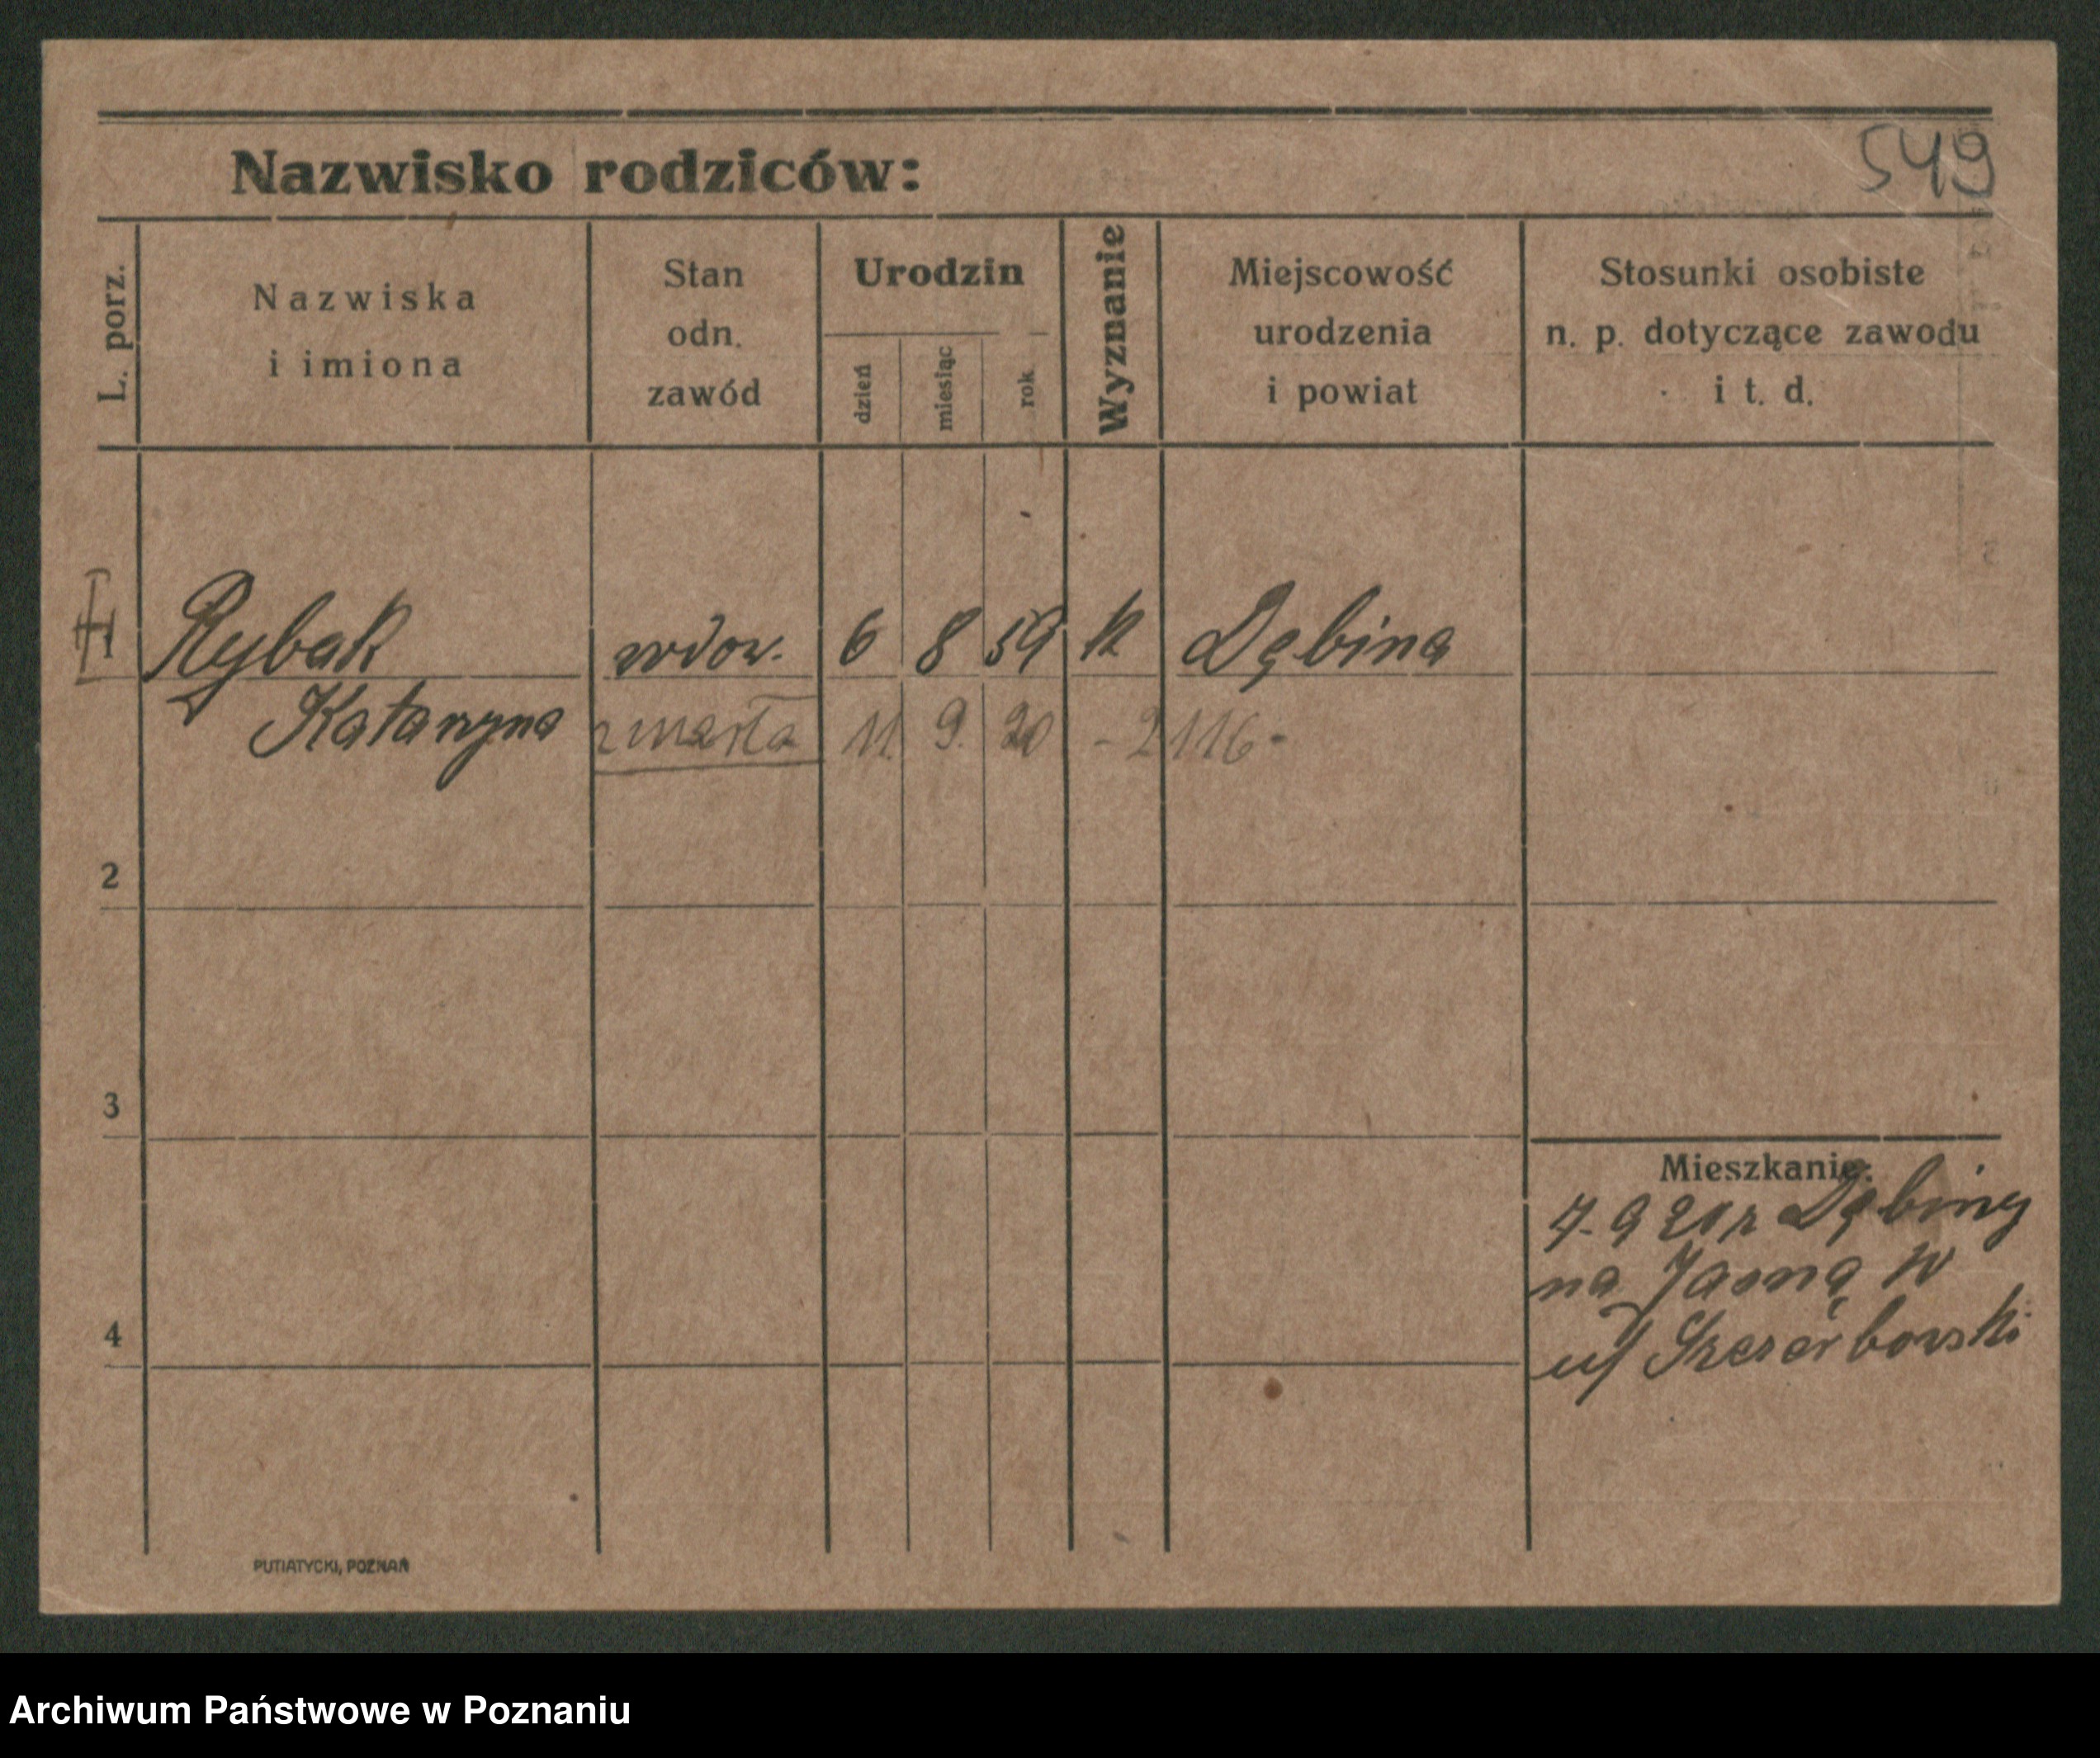 549
Nazwisko rodziców:
L. porz.
Nazwiska
i imiona
Stan
odn.
zawód
Urodzin
dzień
miesiąc
rok
Wyznanie
Miejscowość
urodzenia
i powiat
Stosunki osobiste
n. p. dotyczące zawodu
i t. d.
Rybak wdow. 6 8 59 k Dębina
Katarzyna zmarła 11. 9. 20 - 2116 -
2
3
4
Mieszkanie:
7. 9 20 z Dębiny
na Jasną
u/ Szczerbowski
PUTIATYCKI, POZNAŃ
Archiwum Państwowe w Poznaniu